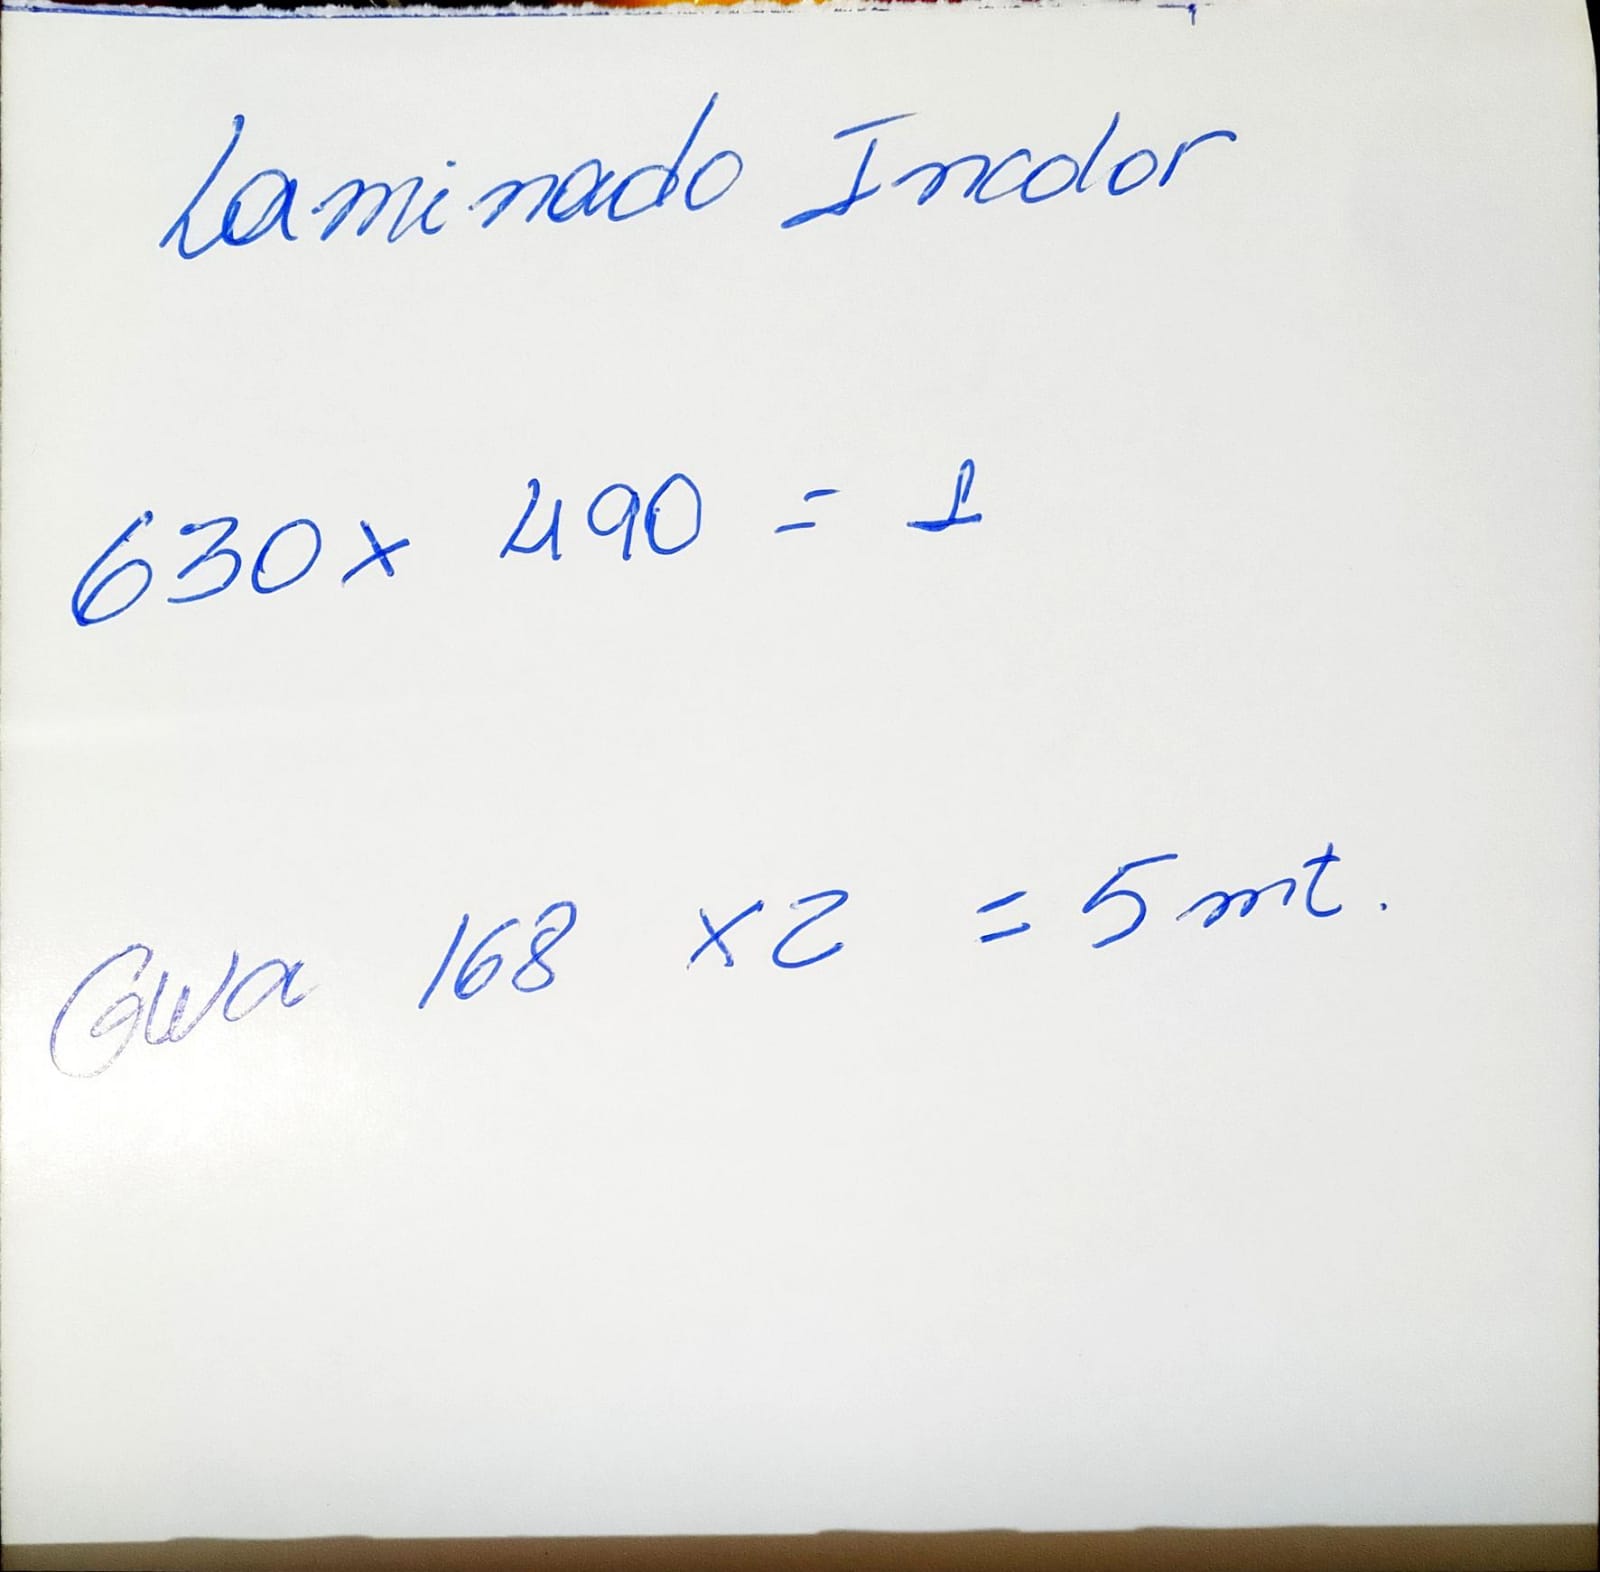 Laminado Incolor
630 x 490 = 1
168 x 2 = 5 mt.